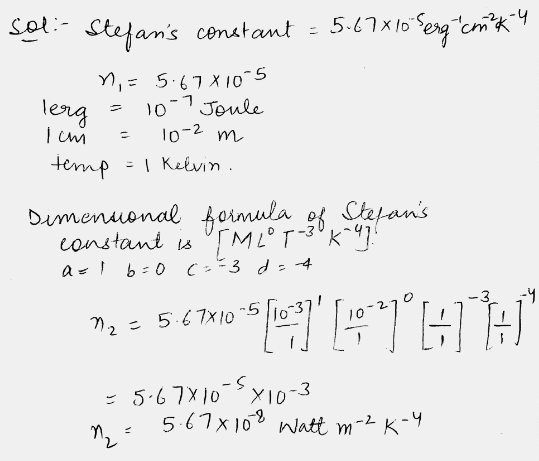 Sol:- Stefan's constant = 5.67×10⁻⁵erg⁻¹cm⁻²K⁻⁴
n₁ = 5.67×10⁻⁵
1erg = 10⁻⁷ Joule
1 cm = 10⁻² m
temp = 1 Kelvin.
Dimensional formula of Stefan's
constant is [ML⁰T⁻³K⁻⁴].
a=1 b=0 c=-3 d=-4
n₂ = 5.67×10⁻⁵ [10⁻³/1]¹ [10⁻²/1]⁰ [1/1]⁻³ [1/1]⁻⁴
= 5.67×10⁻⁵ ×10⁻³
n₂ = 5.67×10⁻⁸ Watt m⁻² K⁻⁴